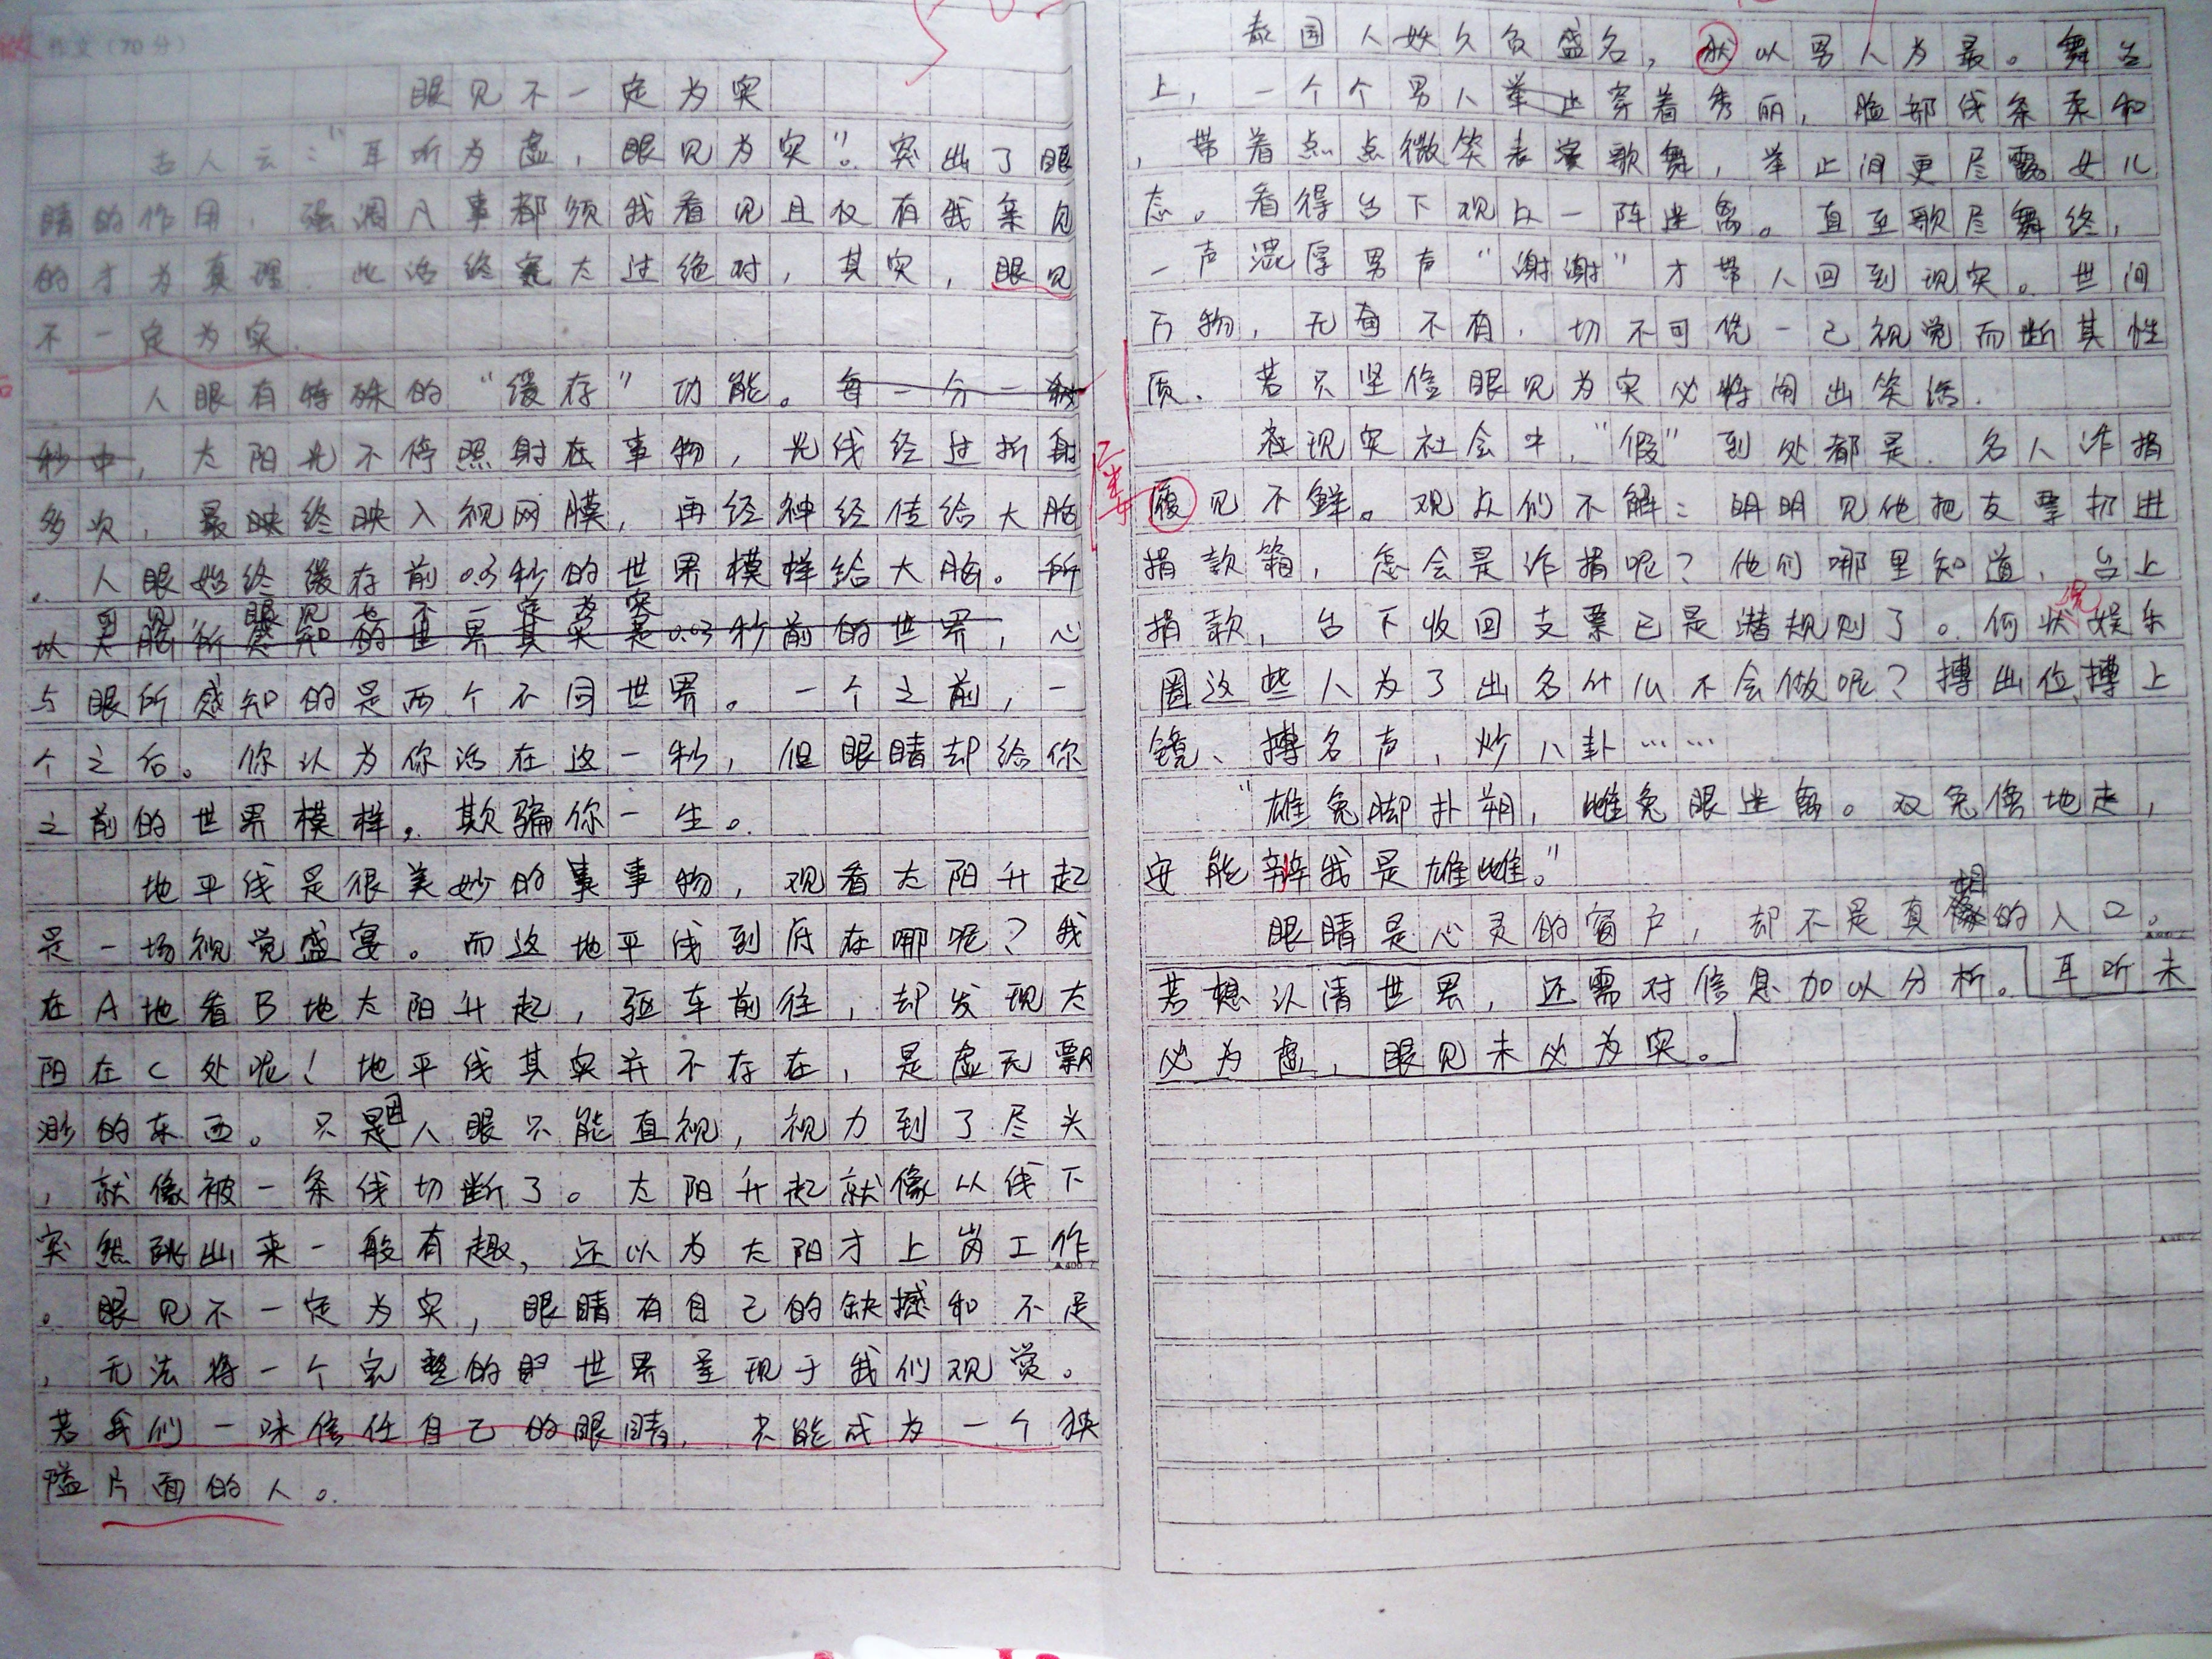 作文（70分）
眼见不一定为实
古人云："耳听为虚，眼见为实"。突出了眼
睛的作用，强调凡事都须我看见且仅有我亲见
的才为真理。此话终究太过绝对，其实，眼见
不一定为实。
人眼有特殊的"缓存"功能。每一分一秒
秒中，太阳光不停照射在事物，光线经过折射
多次，最终映入视网膜，再经神经传给大脑
。人眼始终缓存前0.03秒的世界模样给大脑。所
可见，眼见也不一定为实
以大脑所感知的世界其实是0.03秒前的世界，心
与眼所感知的是两个不同世界。一个之前，一
个之后。你认为你活在这一秒，但眼睛却给你
之前的世界模样。欺骗你一生。
地平线是很美妙的事物，观看太阳升起
是一场视觉盛宴。而这地平线到底在哪呢？我
在A地看B地太阳升起，驱车前往，却发现太
阳在C处呢！地平线其实并不存在，是虚无飘
渺的东西。只是因人眼只能直视，视力到了尽头
，就像被一条线切断了。太阳升起就像从线下
突然跳出来一般有趣，还以为太阳才上岗工作
。眼见不一定为实，眼睛有自己的缺撼和不足
，无法将一个完整的世界呈现于我们观赏。
若我们一味信任自己的眼睛，只能成为一个狭
隘片面的人。
泰国人妖久负盛名，状以男人为最。舞台
上，一个个男人举止穿着秀丽，脸部线条柔和
，带着点点微笑表演歌舞，举止间更尽露女儿
态。看得台下观众一阵迷离。直至歌尽舞终，
一声浑厚男声"谢谢"才带人回到现实。世间
万物，无奇不有，切不可凭一己视觉而断其性
质，若只坚信眼见为实必将闹出笑话。
在现实社会中，"假"到处都是，名人诈捐
屡
履见不鲜。观众们不解：明明见他把支票扔进
捐款箱，怎会是诈捐呢？他们哪里知道，台上
捐款，台下收回支票已是潜规则了。何状况娱乐
圈这些人为了出名什么不会做呢？搏出位、搏上
镜、搏名声，炒八卦……
"雄兔脚扑朔，雌兔眼迷离。双兔傍地走，
安能辨我是雄雌。"
眼睛是心灵的窗户，却不是真相的入口。
若想认清世界，还需对信息加以分析。耳听未
必为虚，眼见未必为实。